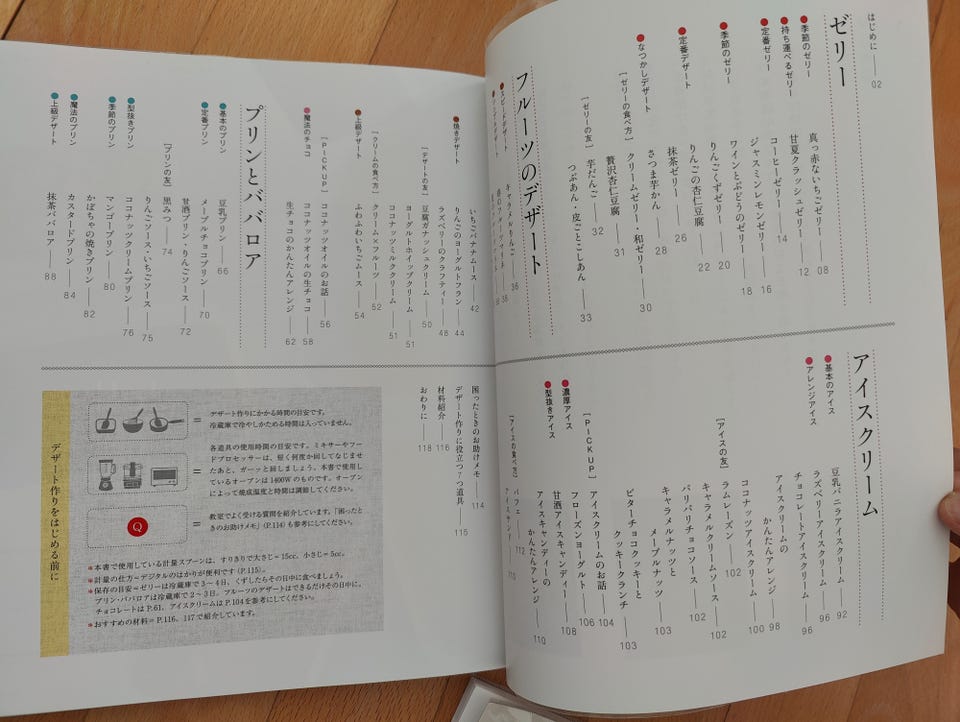 はじめに 02
ゼリー
●季節のゼリー
真っ赤ないちごゼリー 08
甘夏クラッシュゼリー 12
●持ち運べるゼリー
コーヒーゼリー 14
●定番ゼリー
ジャスミンレモンゼリー 16
ワインとぶどうのゼリー 18
●季節のゼリー
りんごくずゼリー 20
りんごの杏仁豆腐 22
●定番デザート
抹茶ゼリー 26
さつま芋かん 28
●なつかしデザート
クリームゼリー・和ゼリー 30
[ゼリーの食べ方]
贅沢杏仁豆腐 31
芋だんご 32
[ゼリーの友]
つぶあん・皮ごとこしあん 33
フルーツのデザート
●スピードデザート
キャラメルりんご 36
アイスクリーム
●基本のアイス
豆乳バニラアイスクリーム 92
●アレンジアイス
ラズベリーアイスクリーム 96
チョコレートアイスクリーム 96
アイスクリームの
かんたんアレンジ 98
ココナッツアイスクリーム 100
[アイスの友]
ラムレーズン 102
キャラメルクリームソース 102
パリパリチョコソース 102
キャラメルナッツと
メープルナッツ 103
ビターチョコクッキーと
クッキークランチ 103
[PICKUP]
アイスクリームのお話 104
●濃厚アイス
フローズンヨーグルト 106
甘酒アイスキャンディー 108
●型抜きアイス
アイスキャンディーの
かんたんアレンジ 110
[アイスの食べ方]
パフェ 112
アイスサンド
いちごバナナムース 42
●焼きデザート
りんごのヨーグルトフラン 44
ラズベリーのクラフティー 48
[デザートの友]
豆腐ガナッシュクリーム 50
ヨーグルトホイップクリーム 51
ココナッツミルククリーム 51
[クリームの食べ方]
クリーム×フルーツ 52
●上級デザート
ふわふわいちごムース 54
[PICKUP]
ココナッツオイルのお話 56
●魔法のチョコ
ココナッツオイルの生チョコ 58
生チョコのかんたんアレンジ 62
プリンとババロア
●基本のプリン
豆乳プリン 66
●定番プリン
メープルチョコプリン 70
甘酒プリン・りんごソース 72
[プリンの友]
黒みつ 74
りんごソース・いちごソース 75
●型抜きプリン
ココナッツクリームプリン 76
●季節のプリン
マンゴープリン 80
かぼちゃの焼きプリン 82
●魔法のプリン
カスタードプリン 84
●上級デザート
抹茶ババロア 88
困ったときのお助けメモ 114
デザート作りに役立つ7つ道具 115
材料紹介 116
おわりに 118
デザート作りをはじめる前に
= デザート作りにかかる時間の目安です。
冷蔵庫で冷やしかためる時間は入っていません。
= 各道具の使用時間の目安です。ミキサーやフー
ドプロセッサーは、短く何度か回してなじませ
たあと、ガーッと回しましょう。本書で使用し
ているオーブンは1400Wのものです。オーブン
によって焼成温度と時間は調節してください。
Q = 教室でよく受ける質問を紹介しています。「困ったと
きのお助けメモ」(P.114)も参考にしてください。
*本書で使用している計量スプーンは、すりきりで大さじ=15cc、小さじ=5cc。
*計量の仕方=デジタルのはかりが便利です(P.115)。
*保存の目安=ゼリーは冷蔵庫で3〜4日、くずしたらその日中に食べましょう。
プリン・ババロアは冷蔵庫で2〜3日。フルーツのデザートはできるだけその日中に。
チョコレートはP.61、アイスクリームはP.104を参考にしてください。
*おすすめの材料=P.116、117で紹介しています。